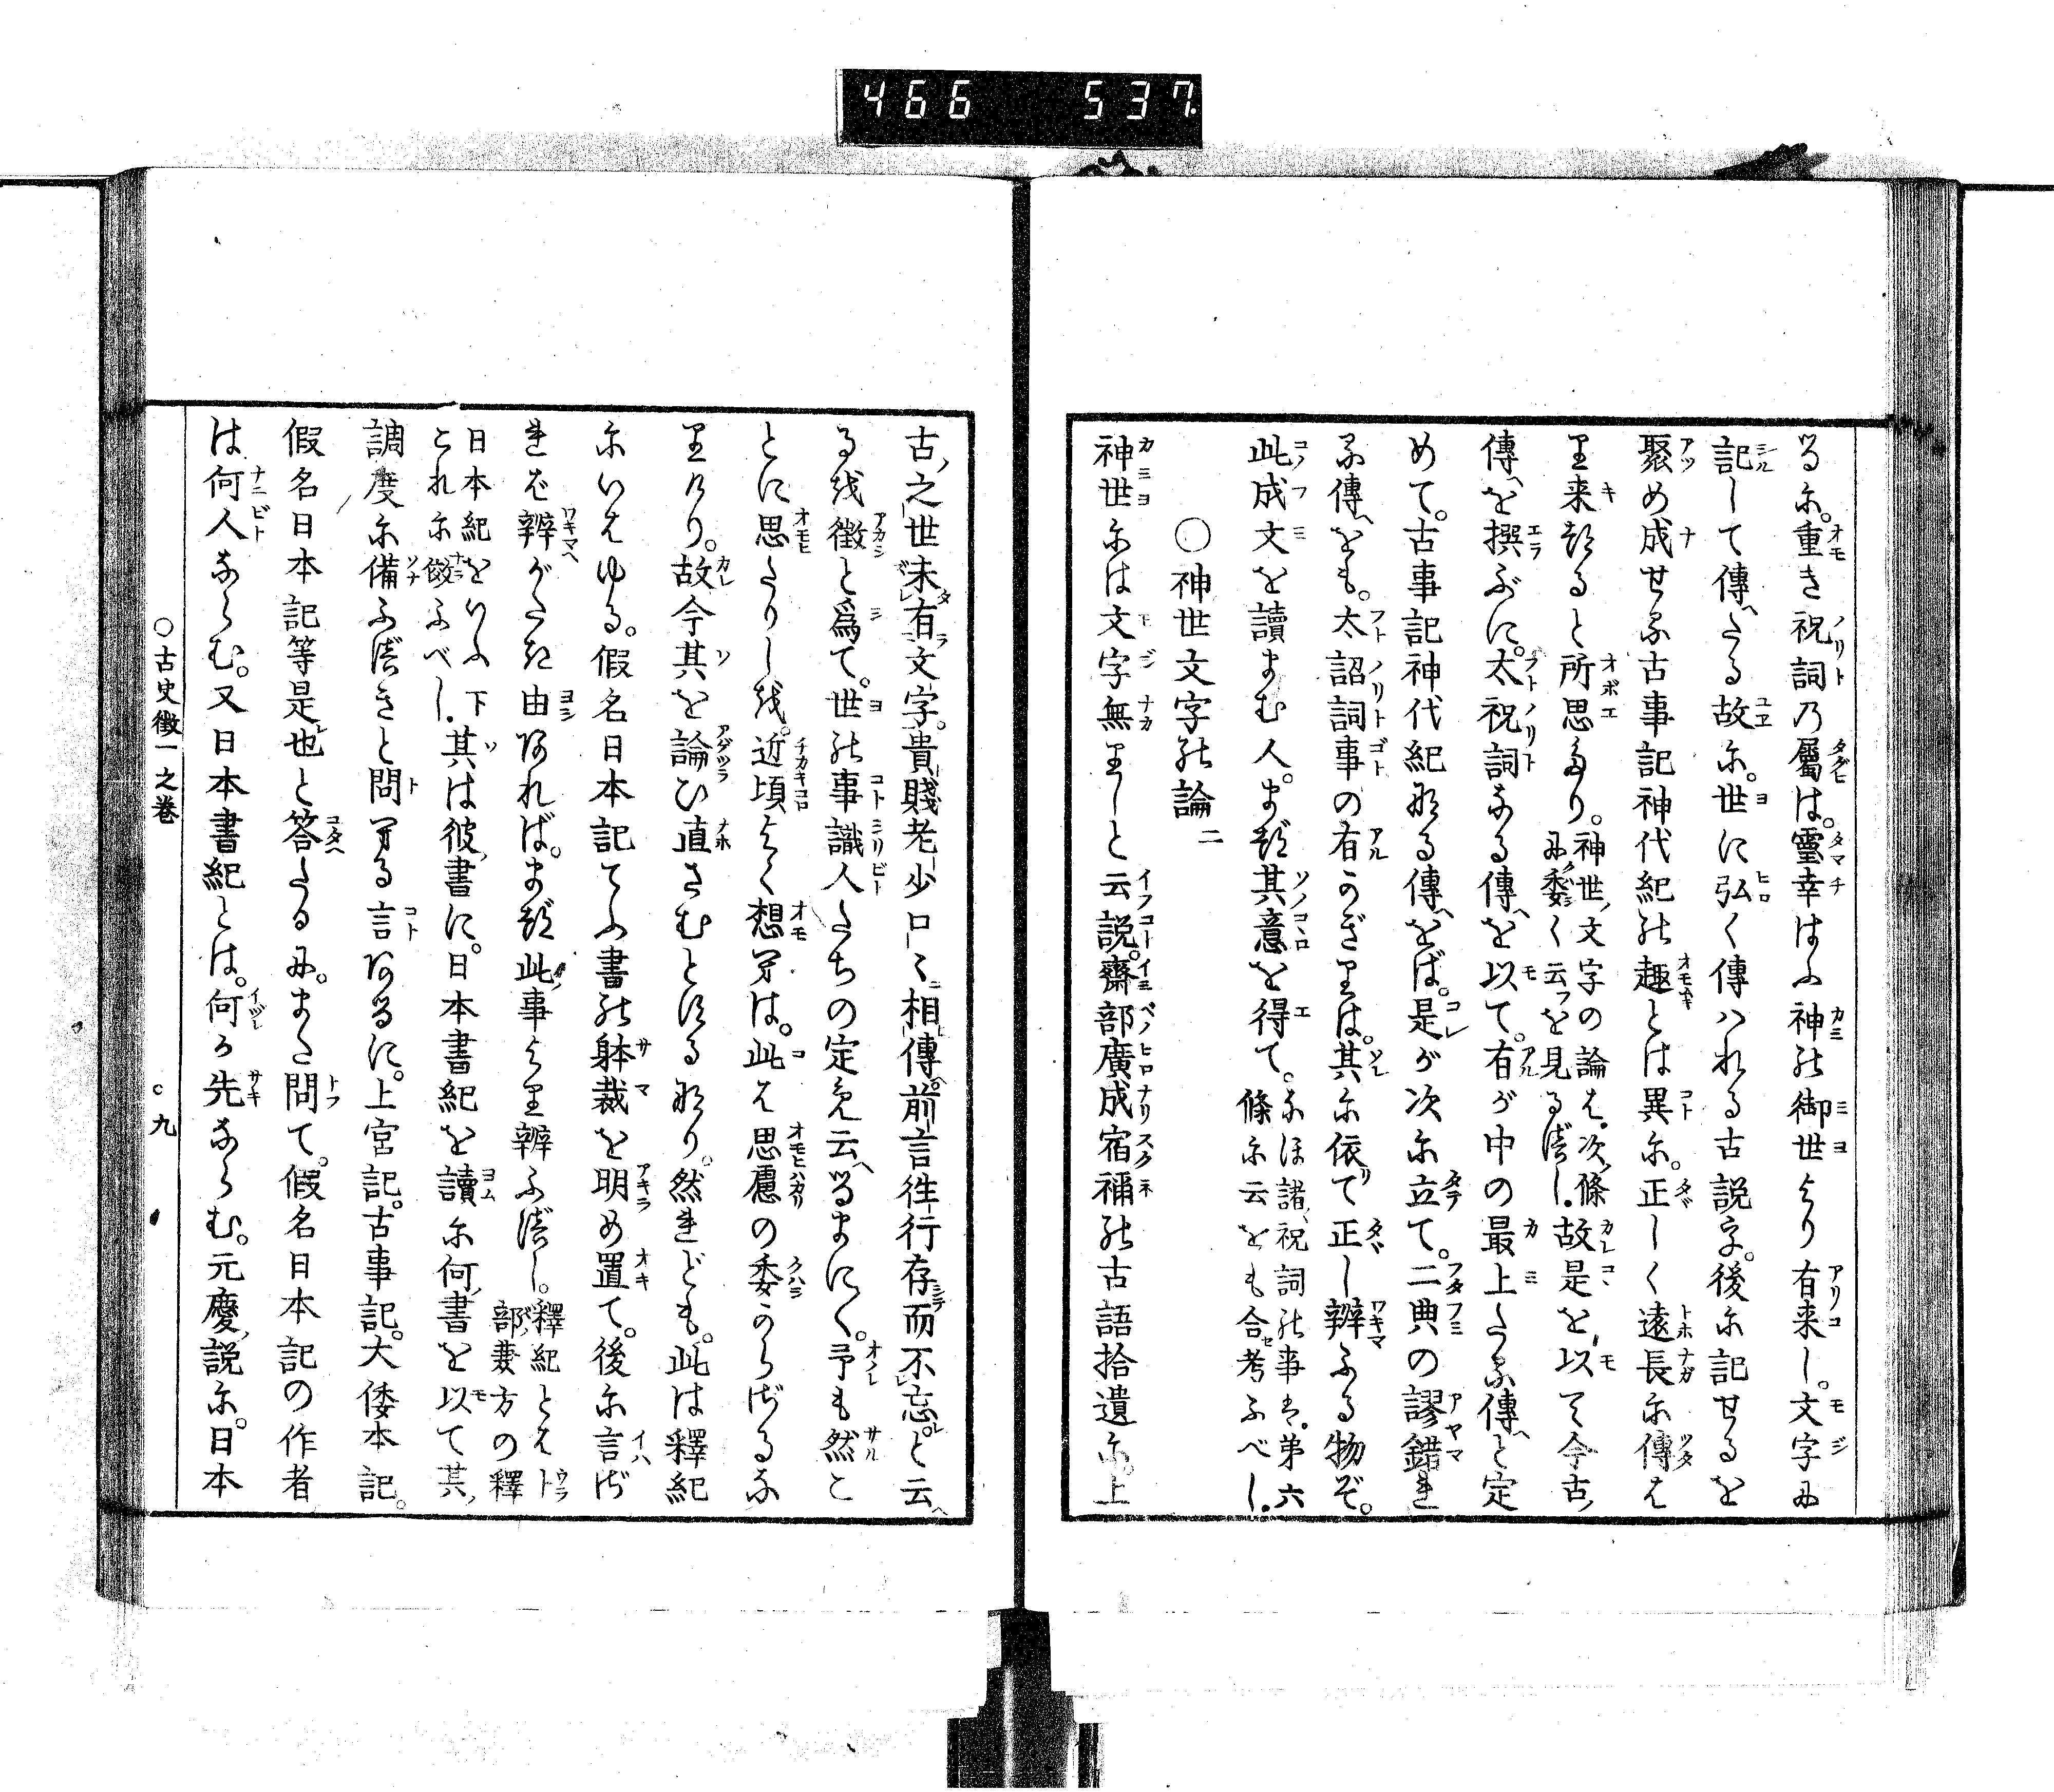 466 537
るに。重き祝詞乃屬は。靈幸はふ神の御世より有来し。文字に
記して傳へたる故に。世に弘く傳はれる古説字。後に記せるを
聚め成せる古事記神代紀の趣とは異に。正しく遠長に傳は
り来つると所思たり。神世ノ文字の論は。次ノ條
に委く云フを見るべし.故是を以て今古ノ
傳へを撰ぶに。太祝詞なる傳へを以て。有が中の最上たる傳へと定
めて。古事記神代紀なる傳へをば。是が次に立て。二典の謬錯れ
る傳へをも。太詔詞事の有のぎりは。其に依て正し辨ふる物ぞ。
此成文を讀まむ人。まづ其意を得て。なほ諸ノ祝詞の事は.第六
條に云をも合セ考ふべし.
〇神世文字の論 二
神世には文字無りしと云説。齋部廣成宿禰の古語拾遺に上
古ノ之世未有文字。貴賤老少口口相傳。前言往行存而不忘。と云へ
る を徴と爲て。世の事識人たちの定め云へるまに〱。予も然こ
とに思たりしを。近頃よく想へば。此は思慮の委からざるな
りけり。故今其を論ひ直さむとするなり。然れども。此は釋紀
にいはゆる。假名日本記てふ書の躰裁を明め置て。後に言ざ
れば辨がたき由あれば。まづ此ノ事より辨ふべし。釋紀とはト
部ノ兼方の釋
日本紀をいふ下
これに倣ふべし.其は彼ノ書に。日本書紀を讀に何ノ書を以て其ノ
調度に備ふべきと問へる言あるに。上宮記。古事記。大倭本記。
假名日本記等是也と答たるに。また問て。假名日本記の作者
は何人ならむ。又日本書紀とは。何か先ならむ。元慶ノ説に。日本
〇古史徴一之巻 〇九